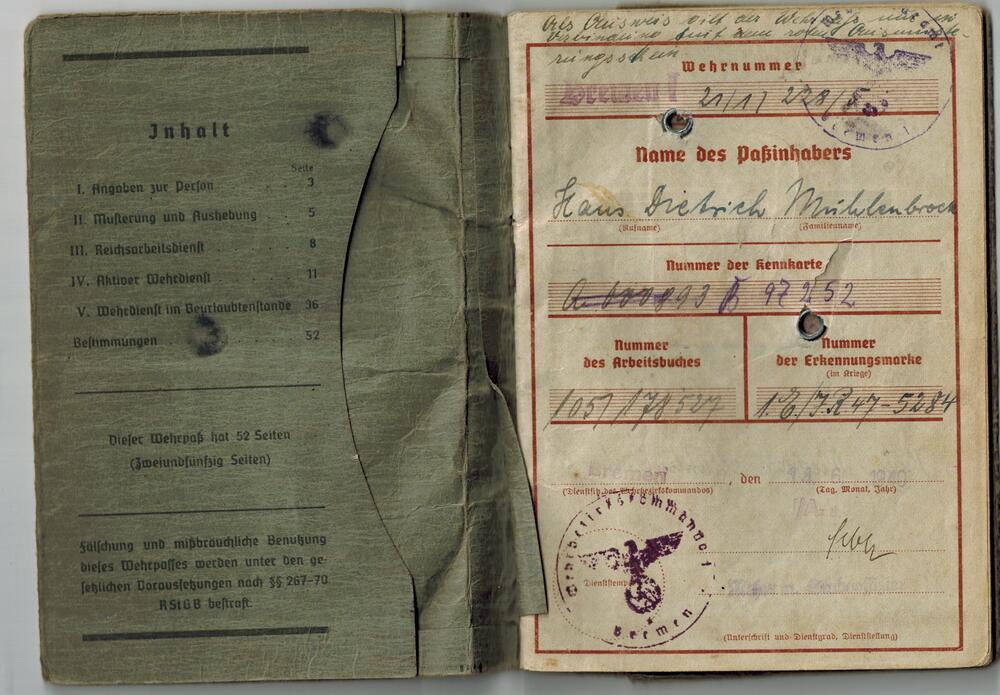 Inhalt
Seite
I. Angaben zur Person . . . 3
II. Musterung und Aushebung . . 5
III. Reichsarbeitsdienst . . . . 8
IV. Aktiver Wehrdienst . . . . 11
V. Wehrdienst im Beurlaubtenstande 36
Bestimmungen . . . . . 52
Dieser Wehrpaß hat 52 Seiten
(Zweiundfünfzig Seiten)
Fälschung und mißbräuchliche Benutzung
dieses Wehrpasses werden unter den ge-
setzlichen Voraussetzungen nach §§ 267-70
RStGB bestraft.
Als Ausweis gilt der Wehrpaß nur in
Verbindung mit dem roten Ausmuste-
rungsschein
Wehrnummer
Bremen I 21/17 228/
Bremen I
Name des Paßinhabers
Hans Dietrich Mühlenbrock
(Rufname) (Familienname)
Nummer der Kennkarte
B 97252
Nummer
des Arbeitsbuches
105/178527
Nummer
der Erkennungsmarke
(im Kriege)
1.E/J.R 47-5284
Bremen, den 14. 6. 1940
(Dienstsitz des Wehrbezirkskommandos) (Tag, Monat, Jahr)
I.A.
Wehrbezirkskommando I
Bremen
Dienststempel
(Unterschrift und Dienstgrad, Dienststellung)